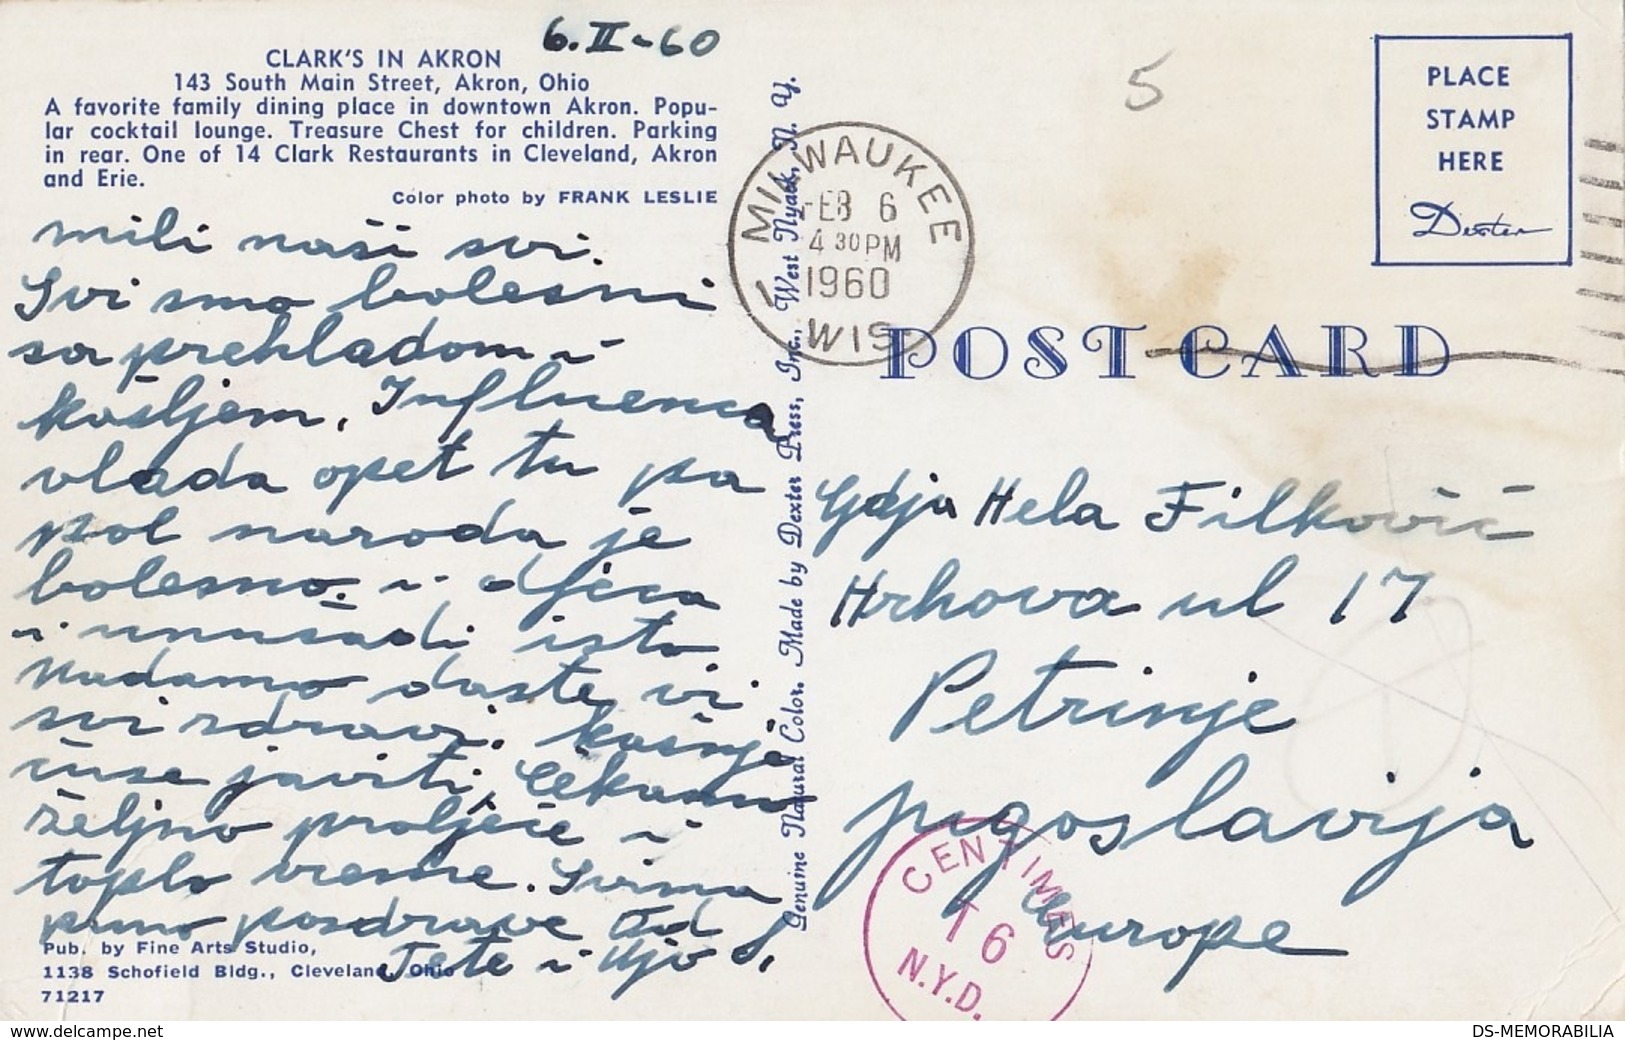 6.II-60
CLARK'S IN AKRON
143 South Main Street, Akron, Ohio
A favorite family dining place in downtown Akron. Popu-
lar cocktail lounge. Treasure Chest for children. Parking
in rear. One of 14 Clark Restaurants in Cleveland, Akron
and Erie.
Color photo by FRANK LESLIE
mili naši svi.
Svi smo bolesni
sa prehladom i
kašljem. Influenca
vlada opet tu pa
pol naroda je
bolesno. i djeca
i unučadi isto
Nadamo da ste vi
svi zdravi.
će se javiti, Čekamo
željno proljeće i
toplo vreme. Svima
puno pozdrave od
Tete i Ujo
Pub. by Fine Arts Studio,
1138 Schofield Bldg., Cleveland, Ohio
71217
Genuine Natural Color. Made by Dexter Press, Inc., West Nyack, N. Y.
MILWAUKEE
FEB 6
4 30 PM
1960
WIS.
5
PLACE
STAMP
HERE
Dexter
POST CARD
Gdja Hela Filković
Hrkova ul 17
Petrinje
Jugoslavija
Europe
CENTIMES
T 6
N.Y.D.
DS-MEMORABILIA